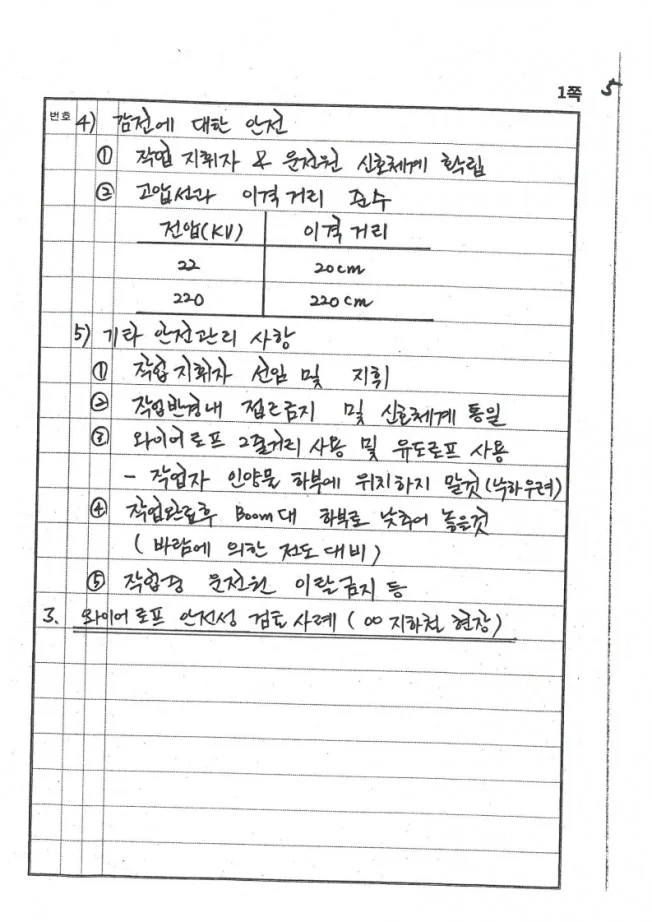 1쪽 5
번호 4) 감전에 대한 안전
① 작업 지휘자 & 운전원 신호체계 확립
② 고압선과 이격 거리 준수
전압(KV) 이격 거리
22 20cm
220 220cm
5) 기타 안전관리 사항
① 작업지휘자 선임 및 지휘
② 작업반경내 접근금지 및 신호체계 통일
③ 와이어로프 2줄거리 사용 및 유도로프 사용
- 작업자 인양물 하부에 위치하지 말것 (낙하우려)
④ 작업완료후 Boom대 하부로 낮추어 놓을것
( 바람에 의한 전도 대비 )
⑤ 작업중 운전원 이탈금지 등
3. 와이어로프 안전성 검토 사례 ( ○○ 지하철 현장 )